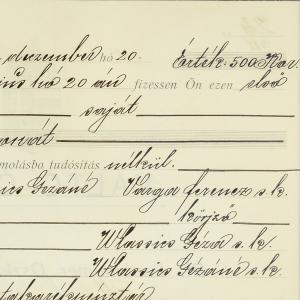 december hó 20. Érték: 500 Kor.
ius hó 20 án fizessen Ön ezen első
saját
molásba tudósítás nélkül.
ics Gézáné Varga Ferencz s.k.
körjző
Wlassics Géza s.k.
Wlassics Gézáné s.k.
takarékpénztár